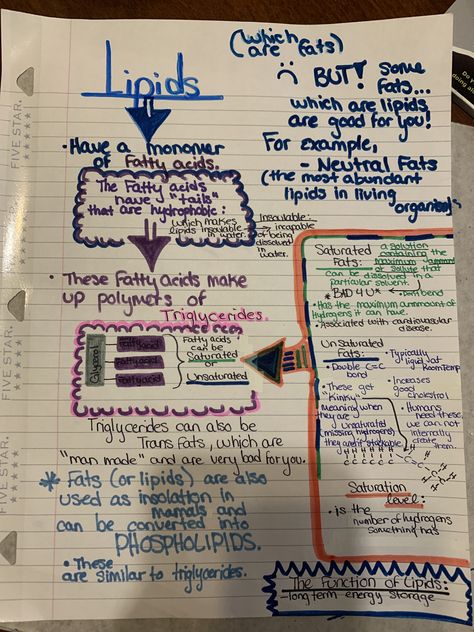 Lipids
(which are fats)
BUT! some
fats...
which are lipids
are good for you!
For example,
- Neutral Fats
(the most abundant
lipids in living
organisms)
• Have a monomer
of Fatty acids.
The Fatty acids
have "tails"
that are hydrophobic:
which makes
lipids insoluable
in water.
Insoulable:
incapable
of being
dissolved
in
water.
• These Fatty acids make
up polymers of
Triglycerides.
Glycerol
Fatty acid
Fatty acid
Fatty acid
Fatty acids
can be
Saturated
or
Unsaturated
Triglycerides can also be
Trans Fats, which are
"man made" and are very bad for you.
* Fats (or lipids) are also
used as insolation in
mamals and
can be converted into
PHOSPHOLIPIDS.
• These
are similar to triglycerides.
Saturated
Fats:
a solution
containing the
maximum
of solute that
can be dissolved in a
particular solvent.
* BAD 4 U *
bend
• Has the maximum ammount of
hydrogens it can have.
• Associated with cardiovascular
disease.
Unsaturated
Fats:
• Double C=C
bond
• These get
"Kinky"
Meaning when
they are
unsaturated
(missing hydrogens)
they aren't stackable.
• Typically
liquid at
Room Temp
• Increases
good
cholestrol
• Humans
need these,
we can not
internally
create
them.
H H H H H H
C C C C C C
Saturation
level:
• is the
number of hydrogens
something has
The Function of Lipids:
- long term energy storage
FIVE STAR.
FIVE STAR.
FIVE STAR.